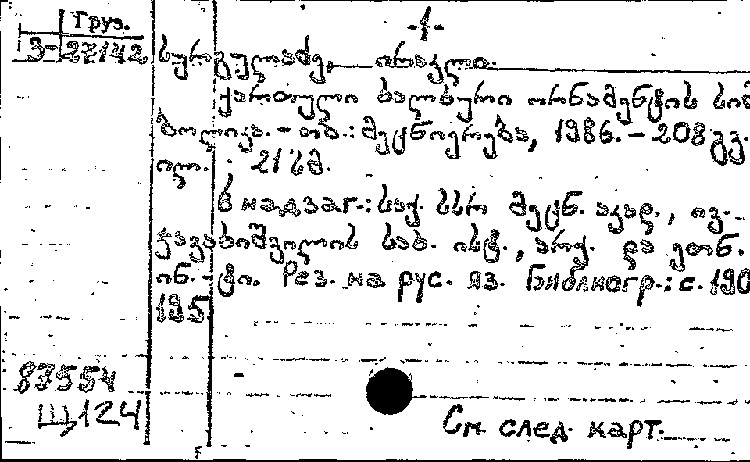 -1-
Груз.
3-27142
სურგულაძე, ირაკლი.
ქართული ხალხური ორნამენტის სიმ
ბოლიკა. - თბ.: მეცნიერება, 1986. - 208 გვ.
ილ. ; 21 სმ.
В надзаг.: საქ. სსრ მეცნ. აკად., ივ.
ჯავახიშვილის სახ. ისტ., არქ. და ეთნ.
ინ. - ტი. Рез. на рус. яз. Библиогр.: с. 190
195
83554
Щ124
См. след. карт.